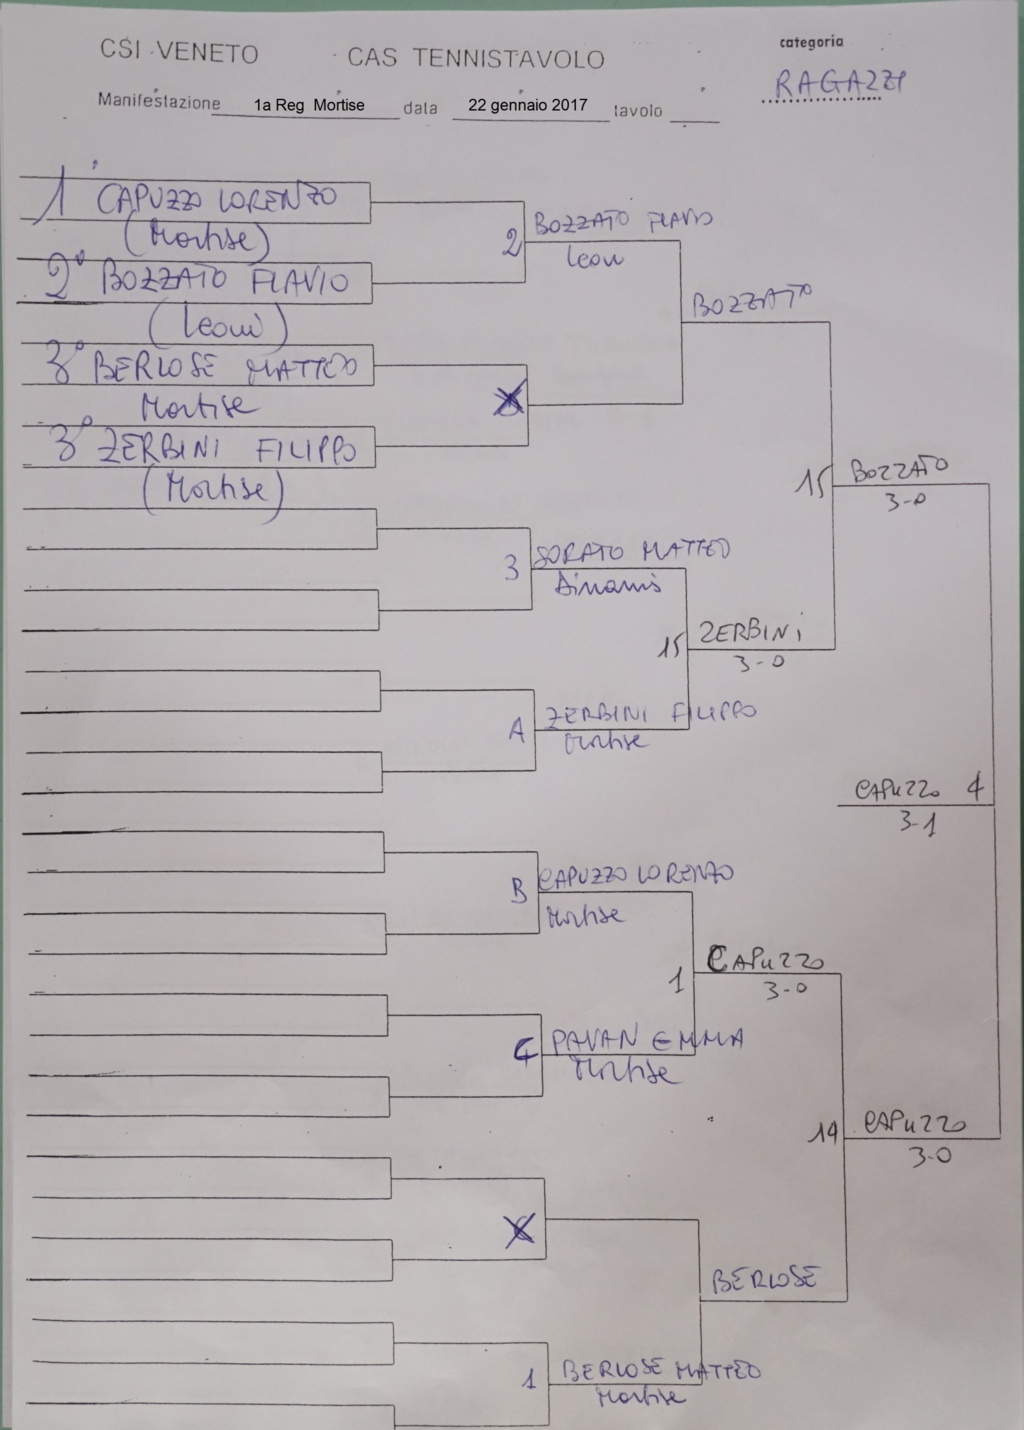 CSI VENETO CAS TENNISTAVOLO categoria
RAGAZZI
Manifestazione 1a Reg Mortise data 22 gennaio 2017 tavolo
1° CAPUZZO LORENZO
(Mortise)
2 BOZZATO FLAVIO
Leoni
2° BOZZATO FLAVIO
(Leoni)
BOZZATO
3° BERLOSE MATTEO
Mortise
3° ZERBINI FILIPPO
(Mortise)
15 BOZZATO
3-0
3 SORATO MATTEO
Dinamis
15 ZERBINI
3-0
A ZERBINI FILIPPO
Mortise
CAPUZZO 4
3-1
B CAPUZZO LORENZO
Mortise
1 CAPUZZO
3-0
4 PAVAN EMMA
Mortise
14 CAPUZZO
3-0
BERLOSE
1 BERLOSE MATTEO
Mortise